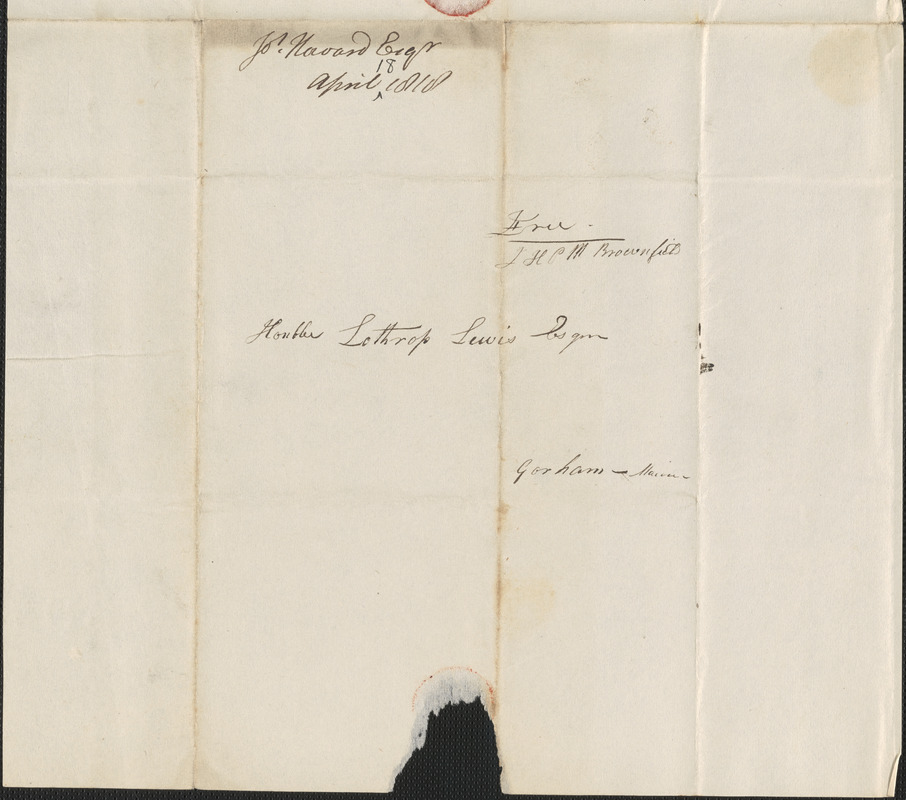 Jos. Howard Esqr
18
April ‸ 1818
Free -
J H P M Brownfield
Honble Lothrop Lewis Esqr
Gorham - Maine